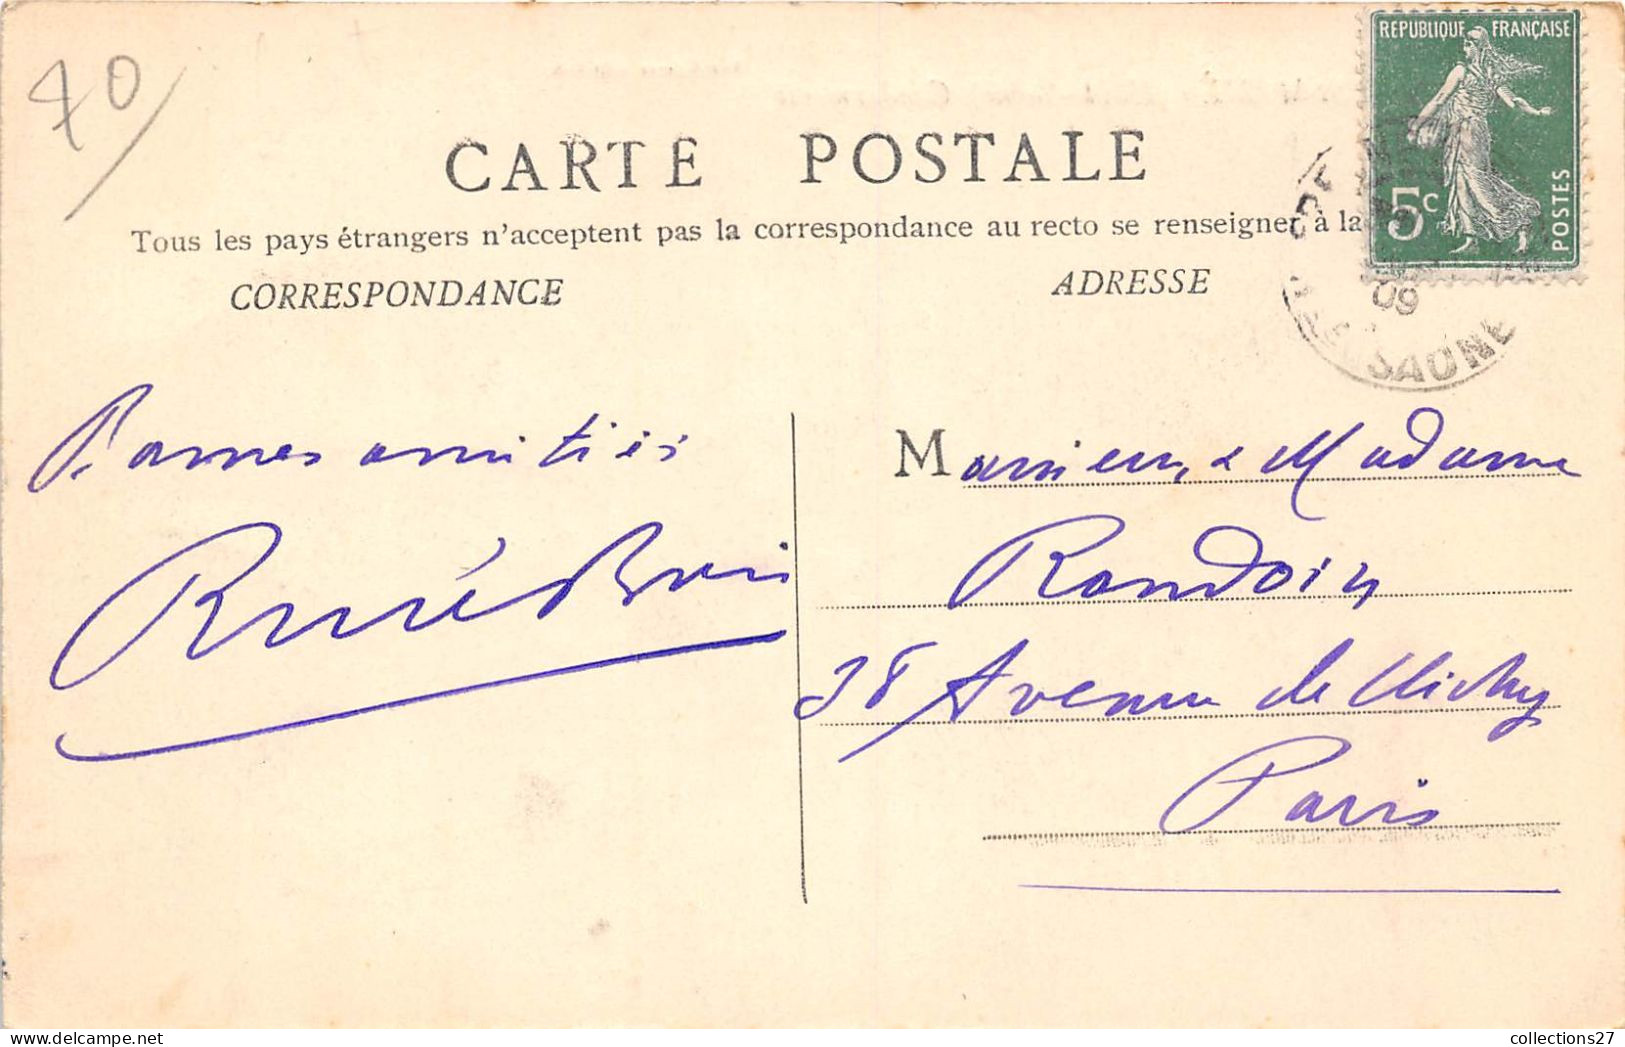 70
REPUBLIQUE FRANÇAISE
5c
POSTES
CARTE POSTALE
Tous les pays étrangers n'acceptent pas la correspondance au recto se renseigner à la
CORRESPONDANCE
ADRESSE
09
SAONE
Bonnes amitiés
René
Monsieur & Madame
Randoin
38 Avenue de Clichy
Paris
collections27